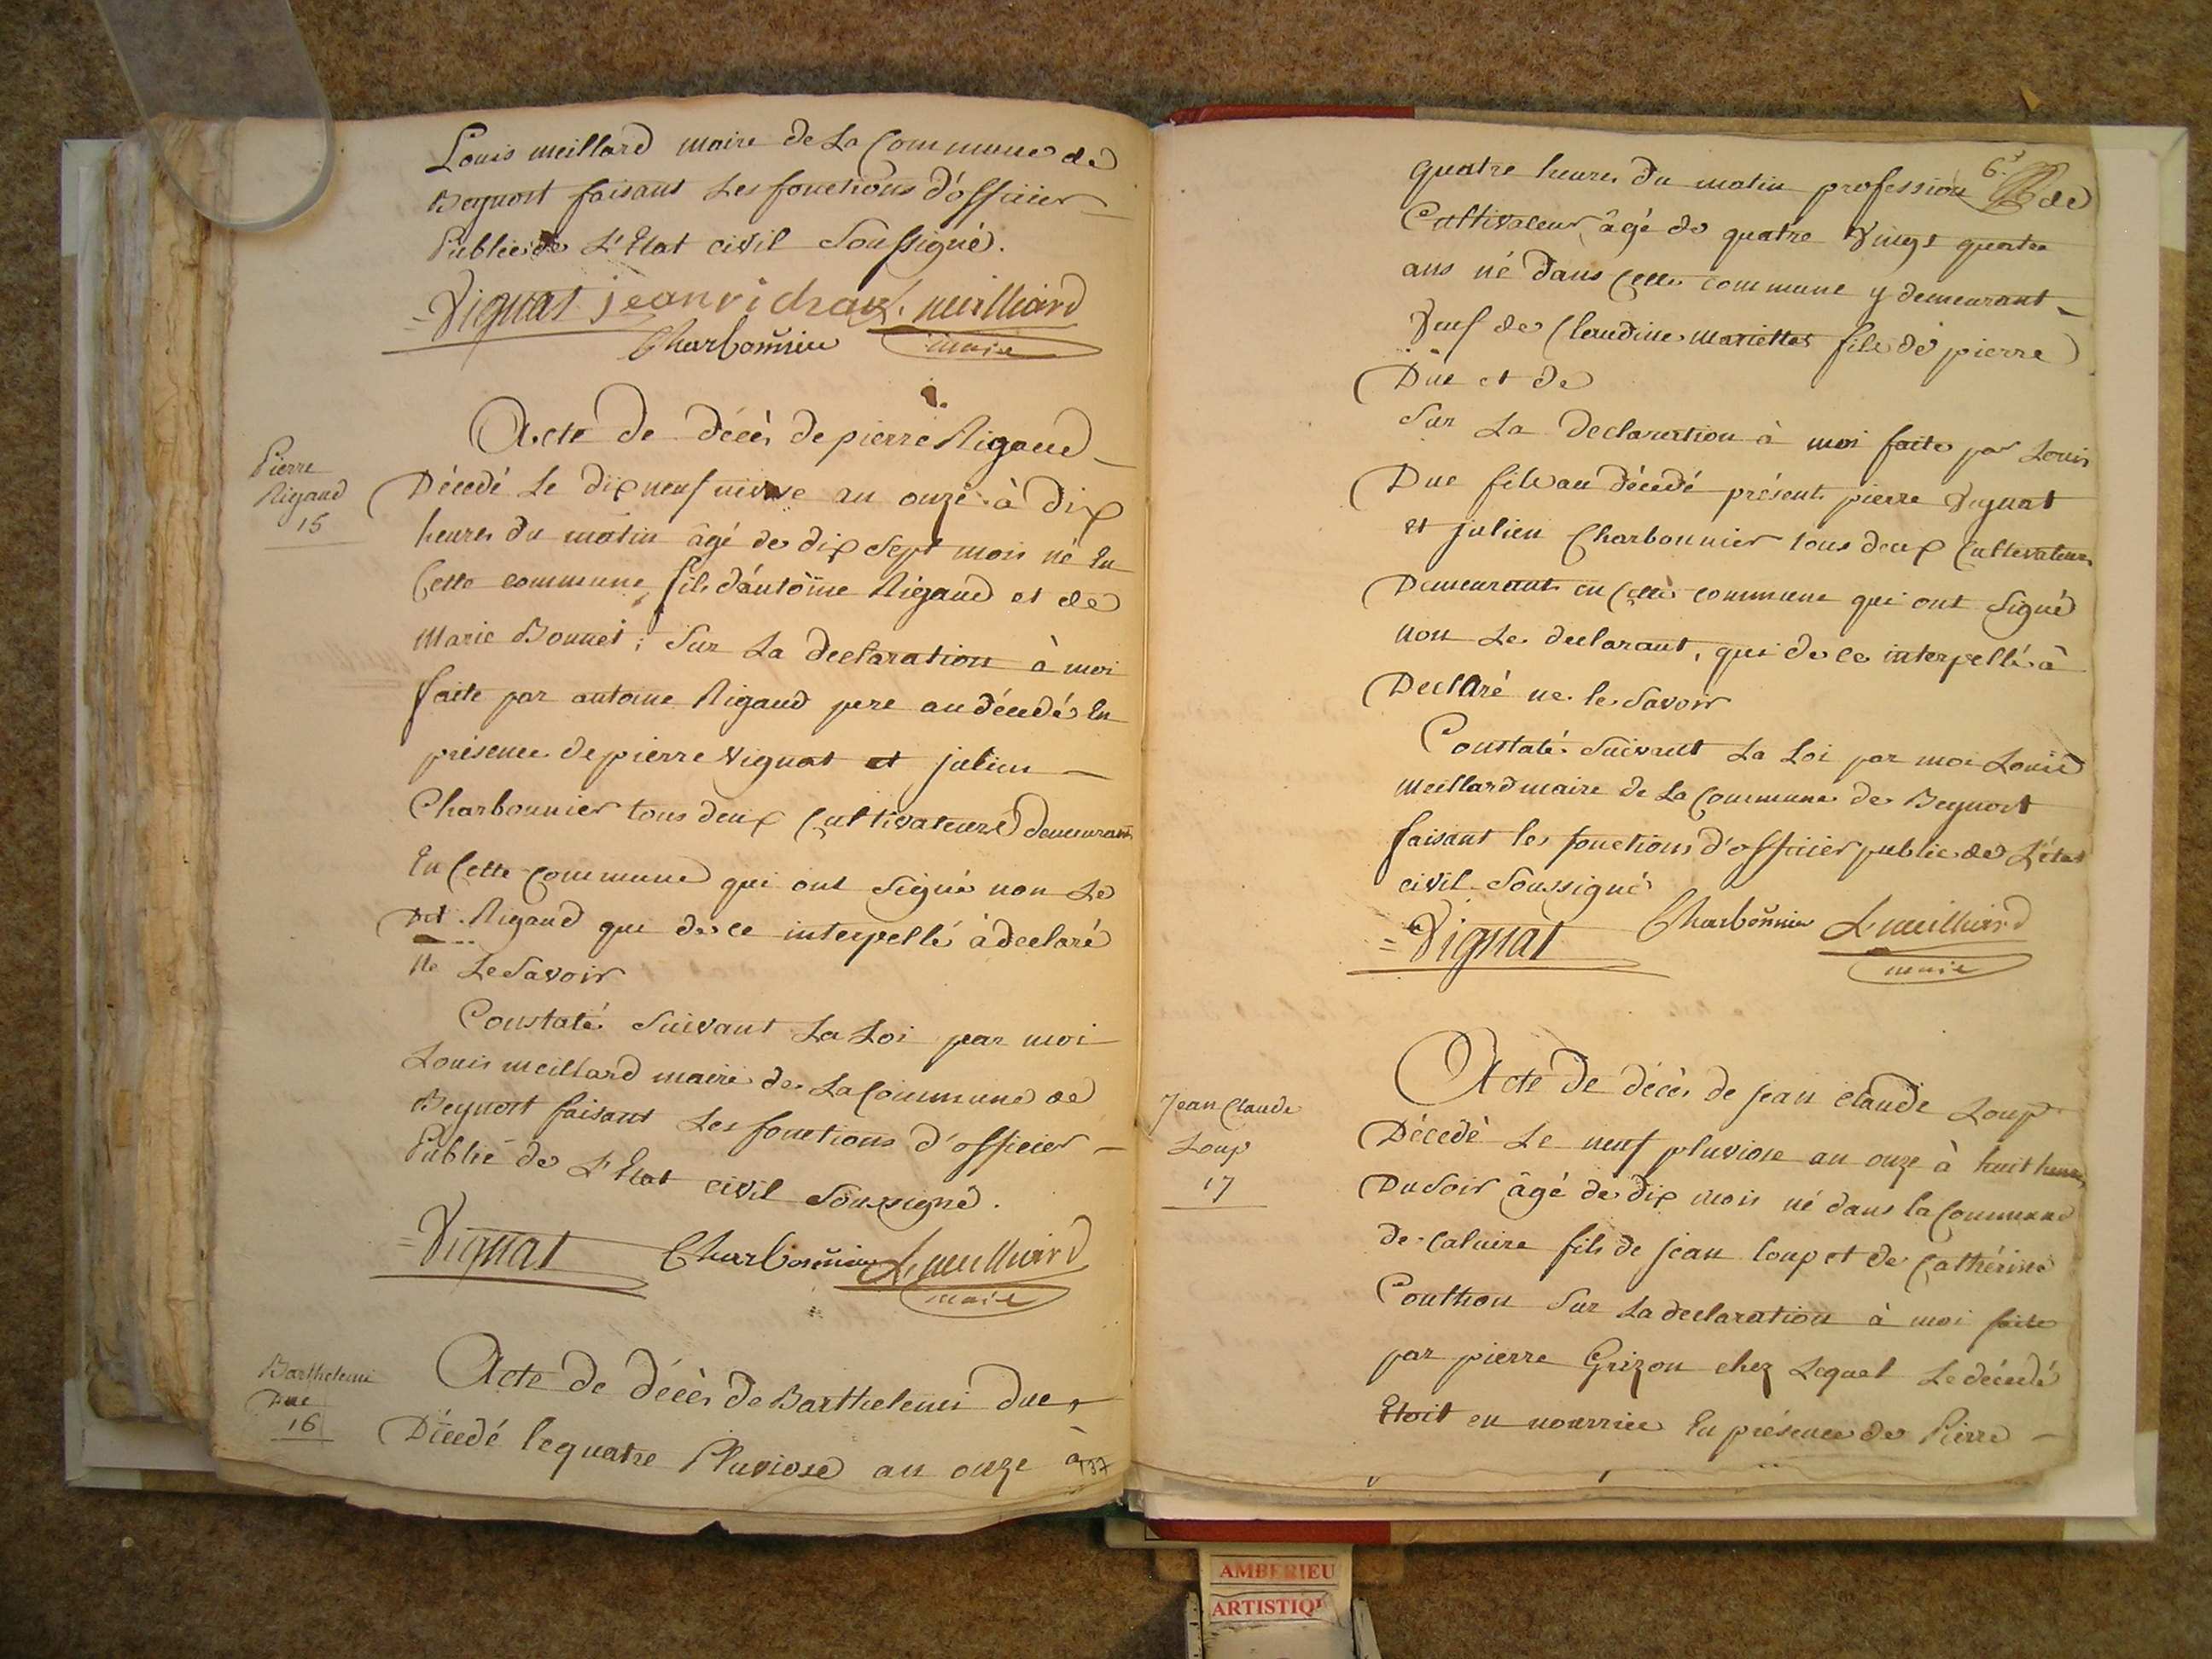 Louis meillard maire de La Commune de
Beynost faisant Les fonctions d'officier
Public de L'Etat civil Soussigné.
Vignat jeanrichax L. meilliard
Charbonnier maire
Acte de décès de pierre Rigaud
Pierre
Rigaud
15
Décedé Le dix neuf nivose an onze à dix
heures du matin âgé de dix Sept mois né En
Cette commune, fils d'antoine Rigaud et de
Marie Bonnet; Sur La declaration à moi
faite par antoine Rigaud pere au décedé En
présence de pierre Vignat et julien
Charbonnier tous deux Cultivateurs demeurant
En Cette Commune qui ont Signé non Le
Dit Rigaud qui de ce interpellé à declaré
Ne Le Savoir
Constaté Suivant La Loi par moi
Louis meillard maire de La Commune de
Beynost faisant Les fonctions d'officier
Public de L'Etat civil Soussigné.
Vignat Charbonnier L. meilliard
maire
Barthelemi
Duc
16
Acte de décès de Barthelemi duc,
Décedé le quatre Pluviose an onze à
137
6.
quatre heures du matin profession de
Cultivateur, âgé de quatre Vingt quatre
ans né dans Cette commune y demeurant
Veuf de Claudine Mariettes fils de pierre
Duc et de
Sur La declaration à moi faite par Louis
Duc fils au décedé présents pierre Vignat
et julien Charbonnier tous deux Cultivateurs
Demeurants en Cette commune qui ont Signé
non Le declarant, qui de ce interpellé à
Declaré ne le Savoir
Constaté Suivant La Loi par moi Louis
Meillard maire de La Commune de Beynost
faisant les fonctions d'officier public de L'état
civil Soussigné
Vignat Charbonnier L. meilliard
maire
Jean Claude
Loup
17
Acte de décès de jean claude Loup
Décedé Le neuf pluviose an onze à huit heures
Du Soir âgé de dix mois né dans la Commune
de Caluire fils de jean loup et de Cathérine
Couthon Sur La declaration à moi faite
par pierre Grizon chez Lequel Le décedé
Etoit en nourrice En présence de Pierre
AMBERIEU
ARTISTIQU